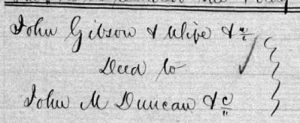 John Gibson & Wife &c
Deed to
John M Duncan &c